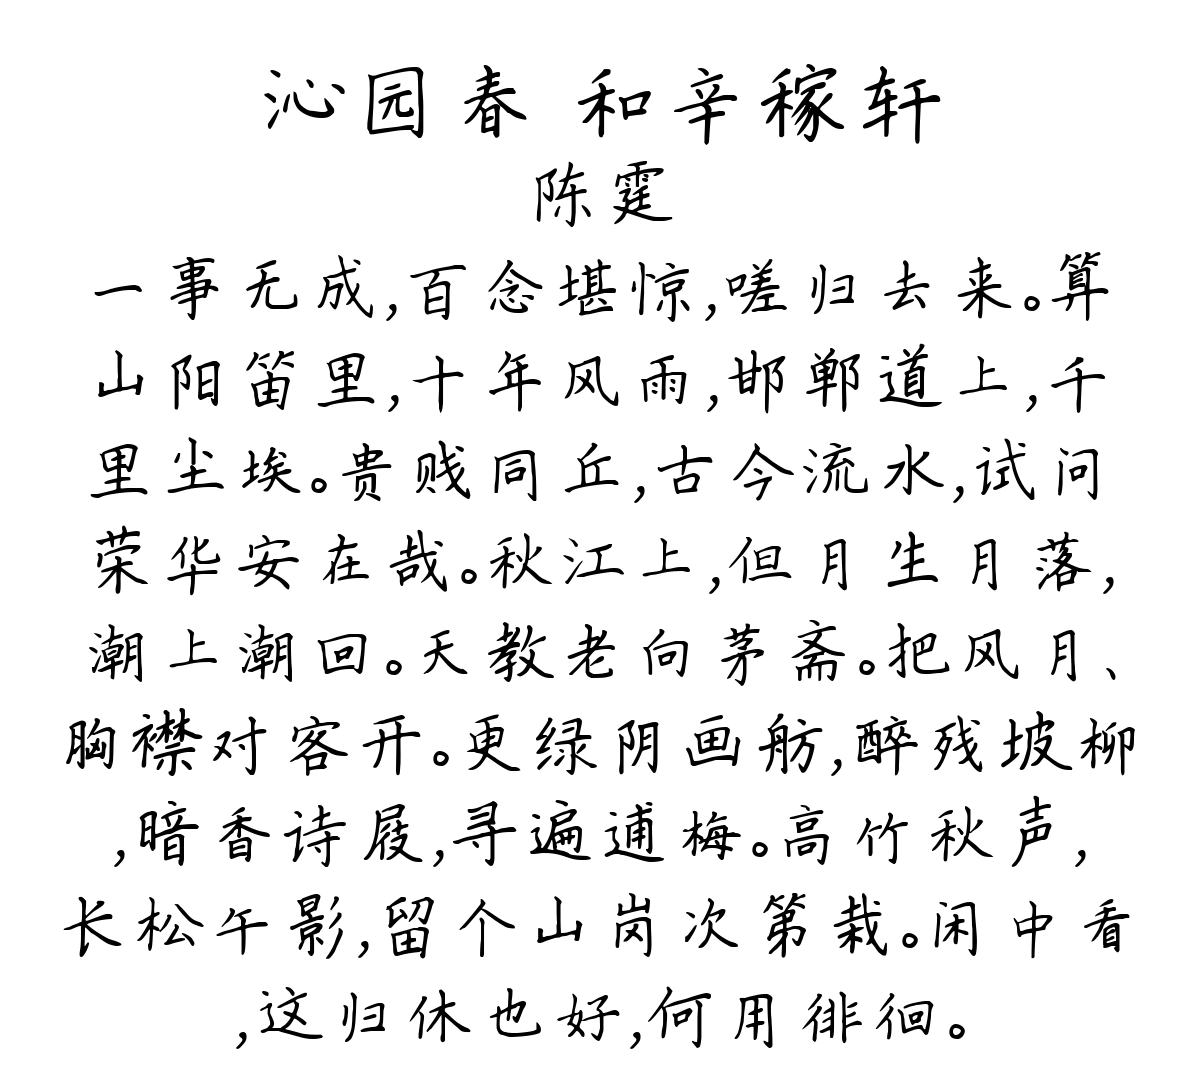 沁园春 和辛稼轩
陈霆
一事无成,百念堪惊,嗟归去来。算
山阳笛里,十年风雨,邯郸道上,千
里尘埃。贵贱同丘,古今流水,试问
荣华安在哉。秋江上,但月生月落,
潮上潮回。天教老向茅斋。把风月、
胸襟对客开。更绿阴画舫,醉残坡柳
,暗香诗屐,寻遍逋梅。高竹秋声,
长松午影,留个山岗次第栽。闲中看
,这归休也好,何用徘徊。